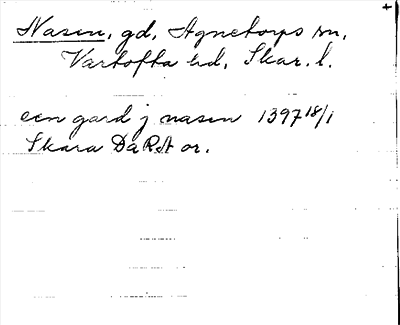 Nasen, gd, Agnetorps sn,
Vartofta hd, Skar. l.
een gard j nasen 1397 18/1
Skara DaRA or.